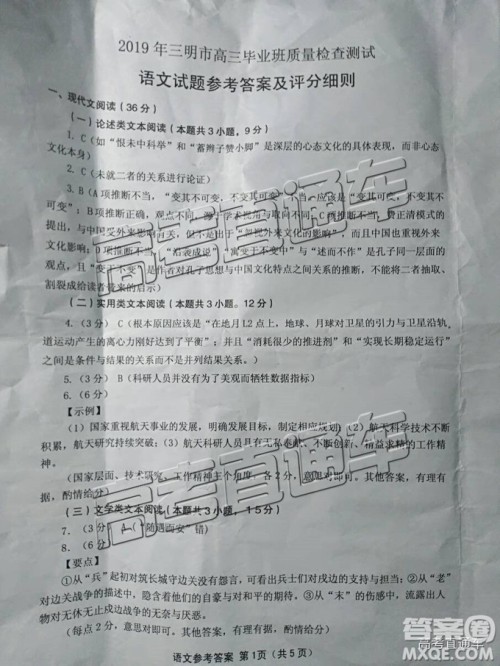 2019 年三明市高三毕业班质量检查测试
语文试题参考答案及评分细则
一、现代文阅读（36 分）
（一）论述类文本阅读（本题共 3 小题，9 分）
1. C（如“恨未中科举”和“蓄辫子赞小脚”是深层的心态文化的具体表现，而非心态
文化本身）
2. C（未就二者的关系进行论证）
3. B（A 项推断不当，“变其不可变，不变其可变”不当，应该是“变其可变，不变其不
可变”；B 项推断正确，观点不同，源于
提出，与中国受外来文化影响
文化影响；D 项推断不当，“后表成说”“寓变于不变中”与“述而不作”是孔子同一层面的
观点，且“变于不变”是作者对孔子思想与中国文化特点之间关系的推断，不能将二者打拙、
割裂成给读者带来的启示）
（二）实用类文本阅读（本题共 3 小题。12 分）
4.（3 分） C（根本原因应该是“在地月 L2 点上，地球、月球对卫星的引力与卫星沿轨
道运动产生的离心力刚好达到了平衡”；并且“消耗很少的推进剂”和“实现长期稳定运行”
之间是条件与结果的关系而不是并列结果关系。）
5.（3 分） B（科研人员并没有为了美观而牺牲数据指标）
6.（6 分）
【示例】
（1）国家重视航天事业的发展，明确目标，制定相应规划；（2）航天科学技术不断
积累，航天研究持续突破；（3）航天科研人员具有无私奉献、不断创新、精益求精的工作精
神。
（国家层面、技术层面、工作精神主个角度，各 2 分，意思对即可。其他答案，有理有
据，酌情给分）
（三）文学类文本阅读（本题共 3 小题，15 分）
7. （3 分） A（“随遇而安”错）
8. （6 分）
【要点】
①从“兵”起初对筑长城守边关没有怨言，可看出兵士们对戍边的支持与担当；②从“老”
对边关战争的回忆中，看出隐含着他们的自豪与对和平的期待。③从“末”的伤感中，感悟出人
物对无休无止戍边战争的无奈与厌恶。
（每点 2 分，意思对即可。其他答案，有理有据，酌情给分）
语文参考答案 第 1 页（共 5 页）
高考直通车
高考直通车
高考直通车
答案圈